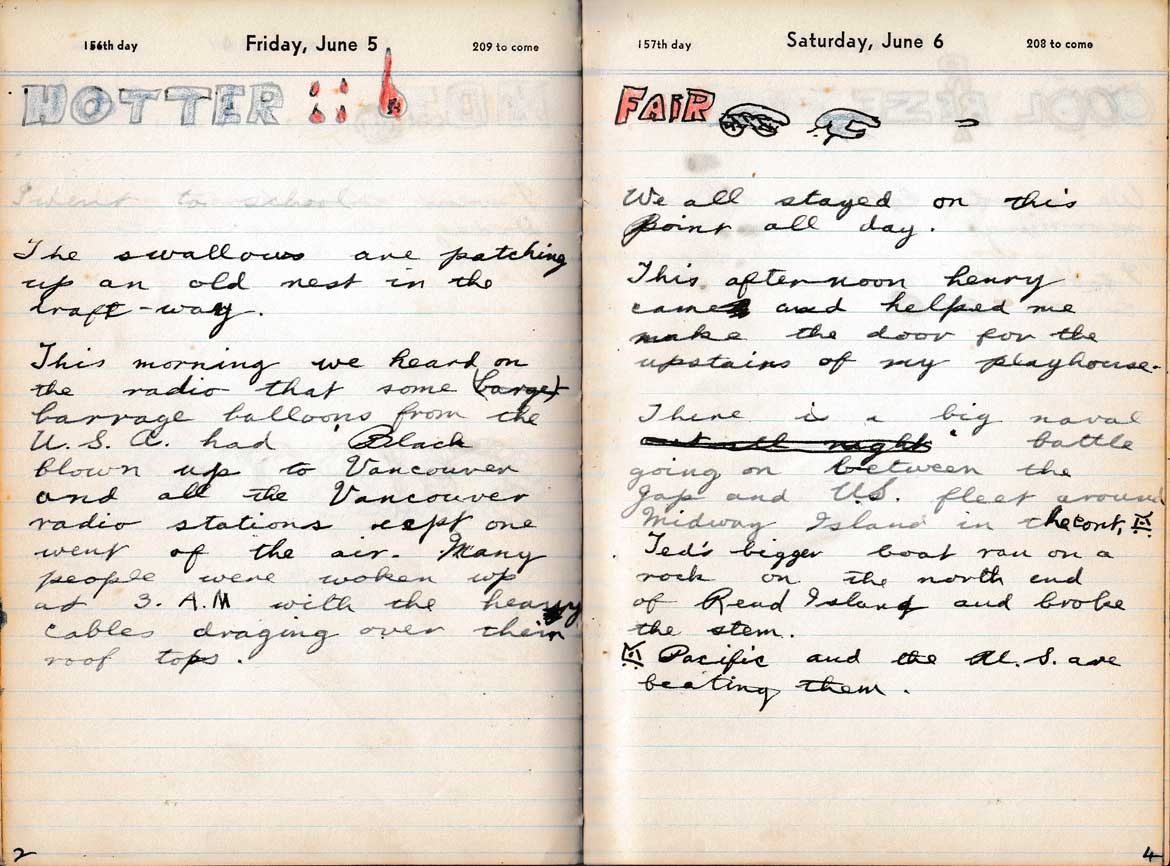 156th day Friday, June 5 209 to come
HOTTER
I went to school
The swallows are patching
up an old nest in the
draft-way.
This morning we heard on
the radio that some (barge)
barrage balloons from the
U.S.A. had Black
blown up to Vancouver
and all the Vancouver
radio stations except one
went of the air. Many
people were woken up
at 3. A.M with the heavy
cables draging over their
roof tops.
2
157th day Saturday, June 6 208 to come
FAIR
We all stayed on this
point all day.
This after-noon henry
came and helped me
make the door for the
upstains of my playhouse.
There is a big naval
battle
going on between the
Jap and U.S. fleet around
Midway Island in the cont,
Ted's bigger boat ran on a
rock on the north end
of Read Island and broke
the stem.
Pacific and the U.S. are
beating them.
4